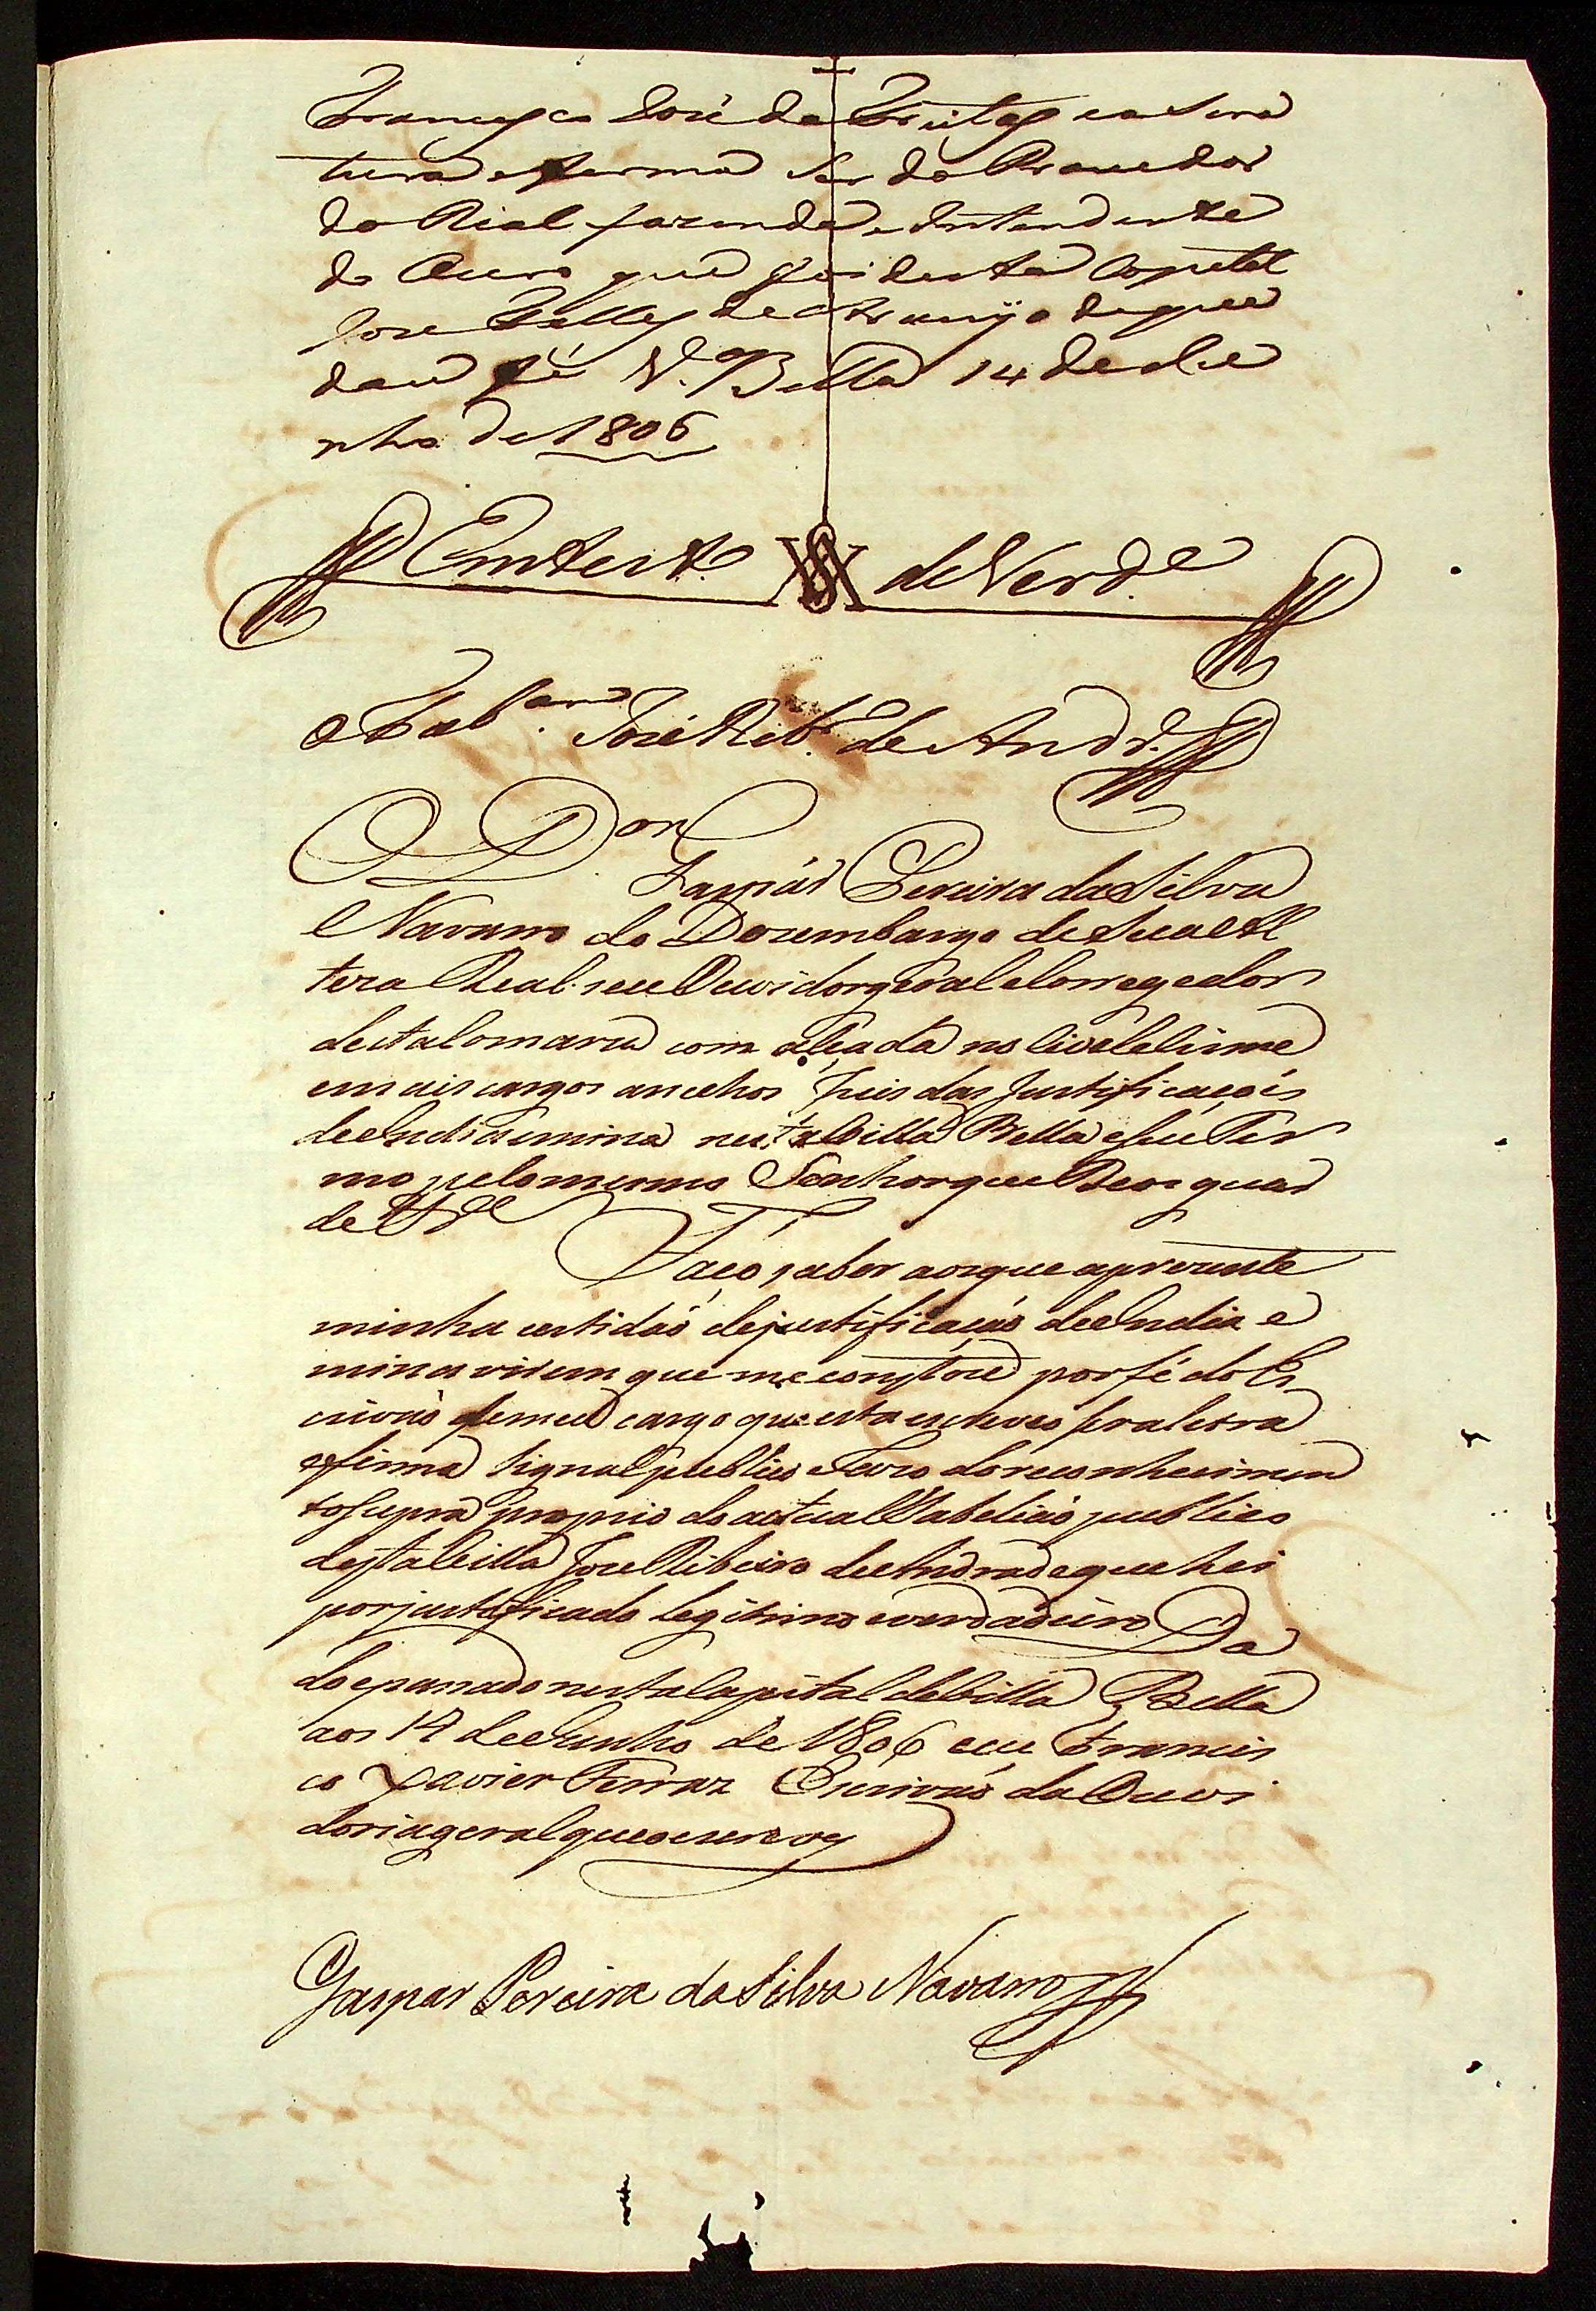 Francisco José de Freitas ea Lera
tura eferma Ser do Provedor
da Rial fazenda e Intendente
do Ouro que foi desta Capital
Jose Telles de Araujo de que
dou fé V.ª Bella 14 de Ju
nho de 1806
Em test.º de Verd.e
O Tab.am José Rib.º de Andr.e
O D.or
Gaspár Pereira da Silva
Navarro do Dezembargo de Sua Al
teza Real seu Ouvidor geral e Corregedor
desta Comarca com alçada no Civel e Crime
emais cargos anechos Juis das Justificaçois
de India emina nesta Villa Bella eseu Ter
mo pelo mesmo Senhor que Deos guar
de &.ª
Faço saber aos que a prezente
minha certidaõ de justificaçaõ de India e
mina virem que me constou por fé do Es
crivaõ de meu cargo que esta escreveo ser a letra
e firma signal publico e razo do reconhecimen
to supra proprio do actual Tabeliaõ publico
desta Villa Jose Ribeiro de Andrade que hei
por justificado legitimo e verdadeiro Da
do e passado nesta Capital de Villa Bella
aos 14 de Junho de 1806 e eu Francis
co Xavier Ferraz Escrivaõ da Ouvi
doria geral que o escrevy
Gaspar Pereira da Silva Navarro